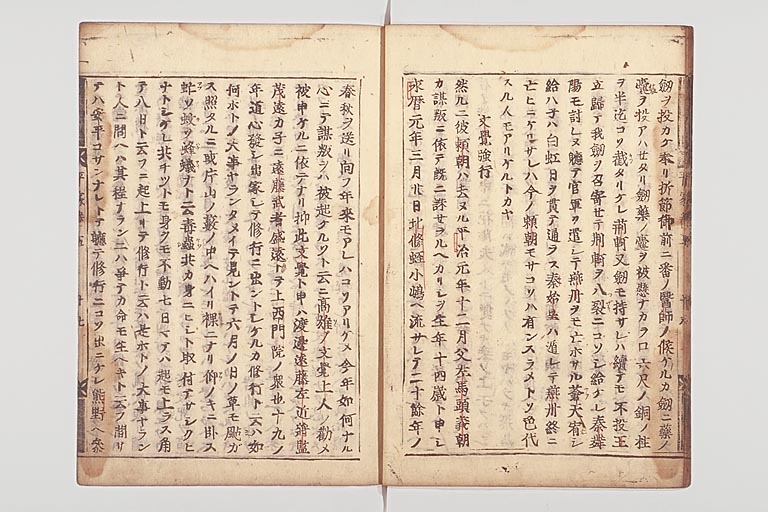 劔ヲ投カケ奉リ折節御前ニ番ノ醫師ノ候ケルカ劔ニ藥ノ
嚢ヲ投アハセタリ劔藥ノ嚢ヲ被懸ナカラ口六尺ノ銅ノ柱
ヲ半迄コソ截タリケレ荊軻又劔モ持サレハ續テモ不投王
立歸テ我劔ヲ召寄セテ荊軻ヲ八裂ニコソシ給ケレ秦舞
陽モ討レヌ軈テ官軍ヲ遣シテ燕丹ヲモ亡ホサル蒼天宥シ
給ハ子ハ白虹日ヲ貫テ通ラス秦始皇ハ遁レテ燕丹終ニ
亡ヒニケリサレハ今ノ頼朝モサコソハ有ンスラメト色代
スル人モアリケルトカヤ
文覺強行
然ルニ彼頼朝ハ去ヌル平治元年十二月父左馬頭義朝
カ謀叛ニ依テ既ニ誅セラルヘカリシヲ生年十四歳ト申シ
永曆元年三月廿日北條蛭小嶋ヘ流サレテ二十餘年ノ
春秋ヲ送リ向フ年來モアレハコソアリケメ今年如何ナル
心ニテ謀叛ヲハ被起ケルソト云ニ高雄ノ文覺上人ノ勸メ
被申ケルニ依テナリ抑此文覺ト申ハ渡邊遠藤左近將監
茂遠カ子ニ遠藤武者盛遠トテ上西門院ノ衆也十九ノ
年道心發シ出家シテ修行ニ出ントシケルカ修行ト云ハ如
何ホトノ大事ヤランタメイテ見ントテ六月ノ日ノ草モ颭カ
ス照タルニ或片山ノ藪ノ中ヘハイリ裸ニナリ仰ノキニ臥ス
虻ソ蚊ソ蜂蟻ナト云毒蟲共カ身ニヒシト取付テサシクヒ
ナトシケレ共チツトモ身ヲモ不動七日マテハ起モ上ラス八
テ八日ト云フニ起上リテ修行ト云ハ是ホトノ大事ヤラン
ト人ニ問ヘハ其程ナランニハ爭テカ命モ生ヘキト云フ間サ
テハ安平コサンナレトテ軈テ修行ニコソ出ニケレ熊野ヘ參